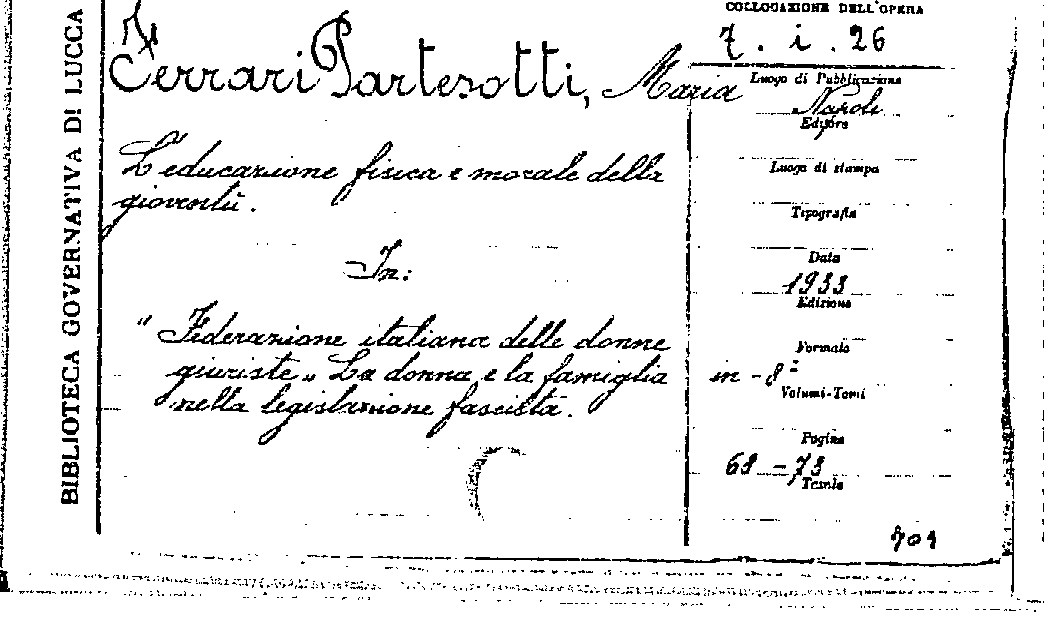 BIBLIOTECA GOVERNATIVA DI LUCCA
Ferrari Partesotti, Maria
L'educazione fisica e morale della
gioventù.
In:
" Federazione italiana delle donne
giuriste „ La donna e la famiglia
nella legislazione fascista.
COLLOCAZIONE DELL'OPERA
7. i. 26
Luogo di Pubblicazione
Napoli
Editore
Luogo di stampa
Tipografia
Data
1933
Edizione
Formato
in-8º
Volumi-Tomi
Pagine
68-73
Tavole